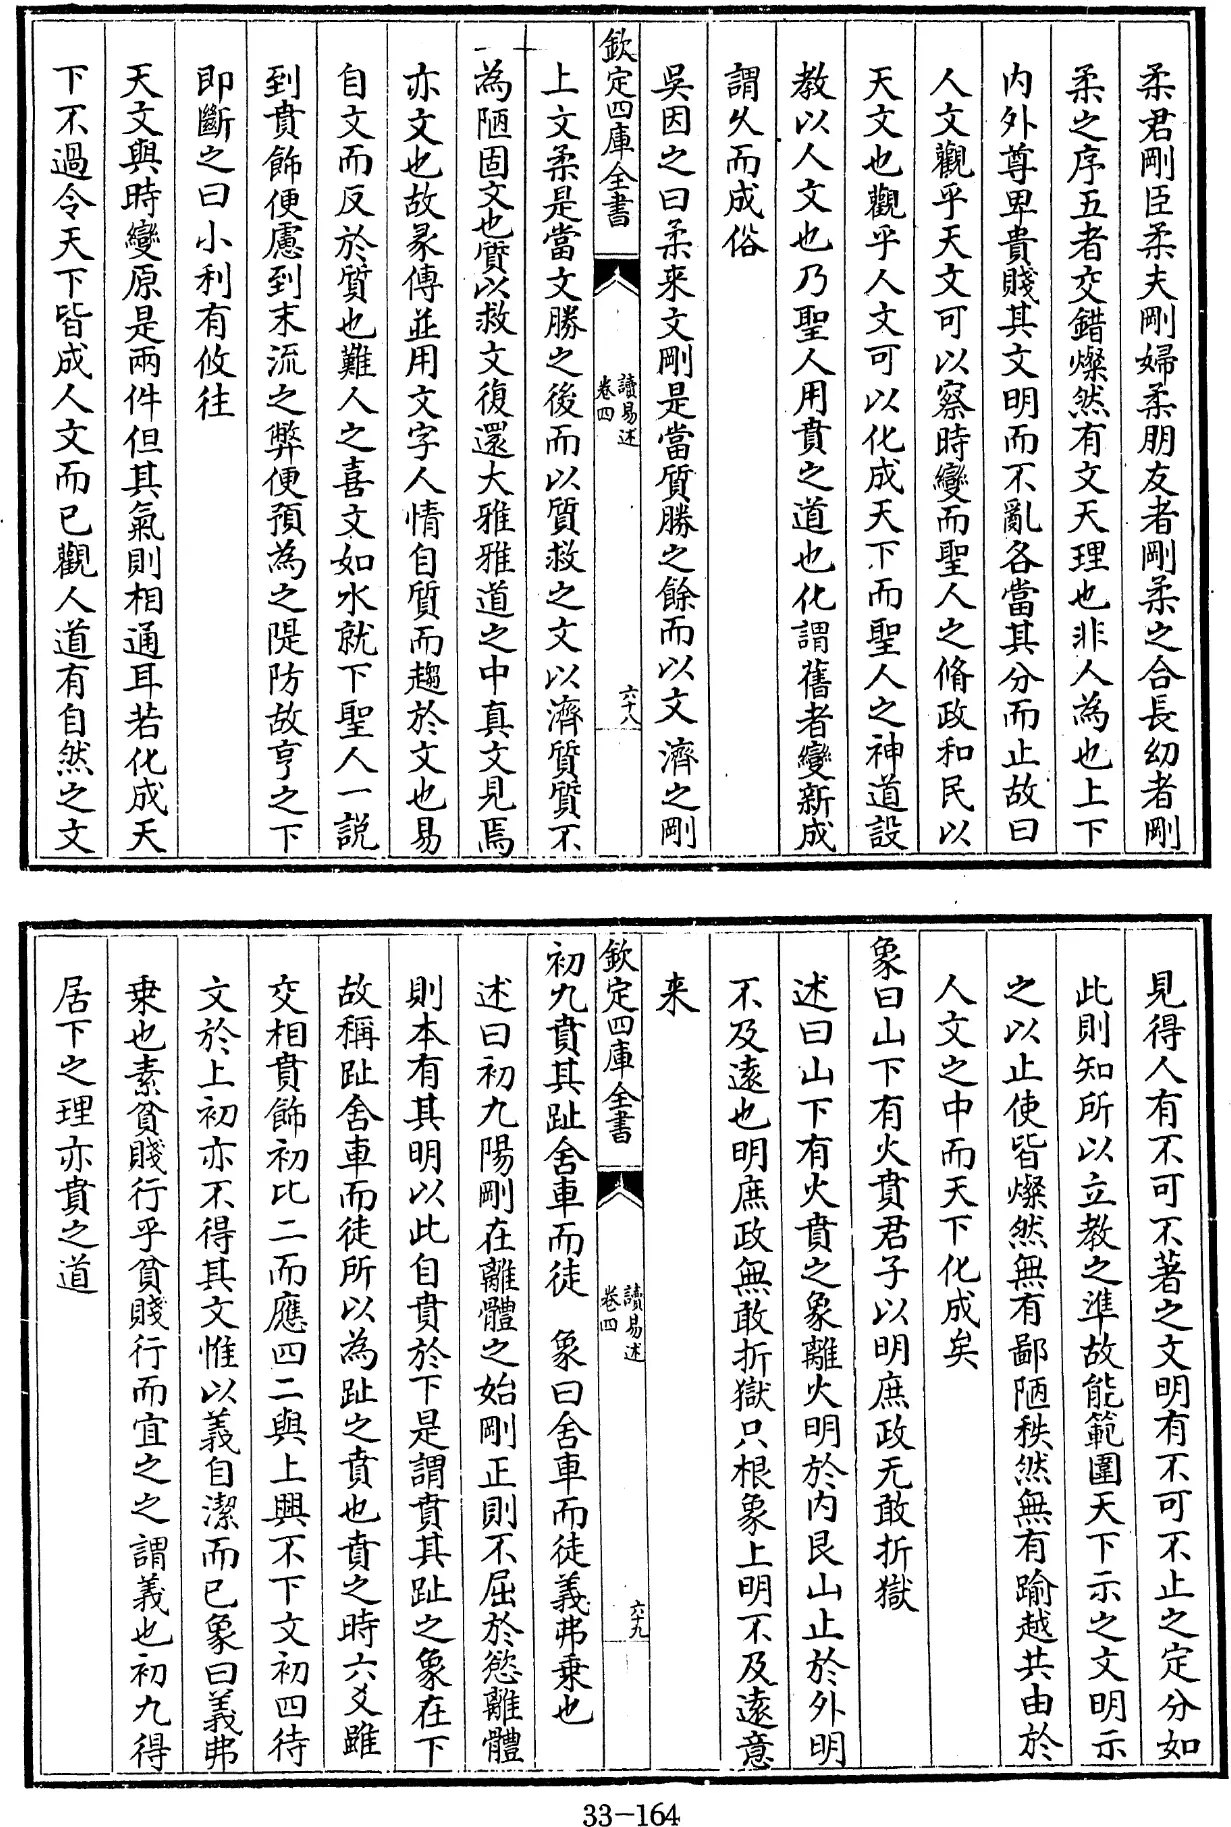 柔君剛臣柔夫剛婦柔朋友者剛柔之合長幼者剛
柔之序五者交錯燦然有文天理也非人為也上下
内外尊卑貴賤其文明而不亂各當其分而止故曰
人文觀乎天文可以察時變而聖人之脩政和民以
天文也觀乎人文可以化成天下而聖人之神道設
教以人文也乃聖人用賁之道也化謂舊者變新成
謂久而成俗
吳因之曰柔来文剛是當質勝之餘而以文濟之剛
欽定四庫全書
讀易述
卷四
六十八
上文柔是當文勝之後而以質救之文以濟質質不
為陋固文也質以救文復還大雅雅道之中真文見焉
亦文也故彖傳並用文字人情自質而趨於文也易
自文而反於質也難人之喜文如水就下聖人一説
到賁飾便慮到末流之弊便預為之隄防故亨之下
即斷之曰小利有攸往
天文與時變原是兩件但其氣則相通耳若化成天
下不過令天下皆成人文而已觀人道有自然之文
見得人有不可不著之文明有不可不止之定分如
此則知所以立教之準故能範圍天下示之文明示
之以止使皆燦然無有鄙陋秩然無有踰越共由於
人文之中而天下化成矣
象曰山下有火賁君子以明庶政无敢折獄
述曰山下有火賁之象離火明於内艮山止於外明
不及遠也明庶政無敢折獄只根象上明不及遠意
来
欽定四庫全書
讀易述
卷四
六十九
初九賁其趾舍車而徒　象曰舍車而徒義弗乗也
述曰初九陽剛在離體之始剛正則不屈於慾離體
則本有其明以此自賁於下是謂賁其趾之象在下
故稱趾舍車而徒所以為趾之賁也賁之時六爻雖
交相賁飾初比二而應四二與上興不下文初四待
文於上初亦不得其文惟以義自潔而已象曰義弗
乗也素貧賤行乎貧賤行而宜之之謂義也初九得
居下之理亦賁之道
33-164